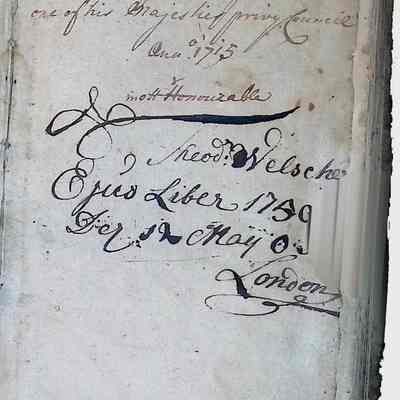 one of his Majesties privy Council
Anno 1715
most Honourable
Theodr Welsche
Ejus Liber 1750
Der 12 May
London